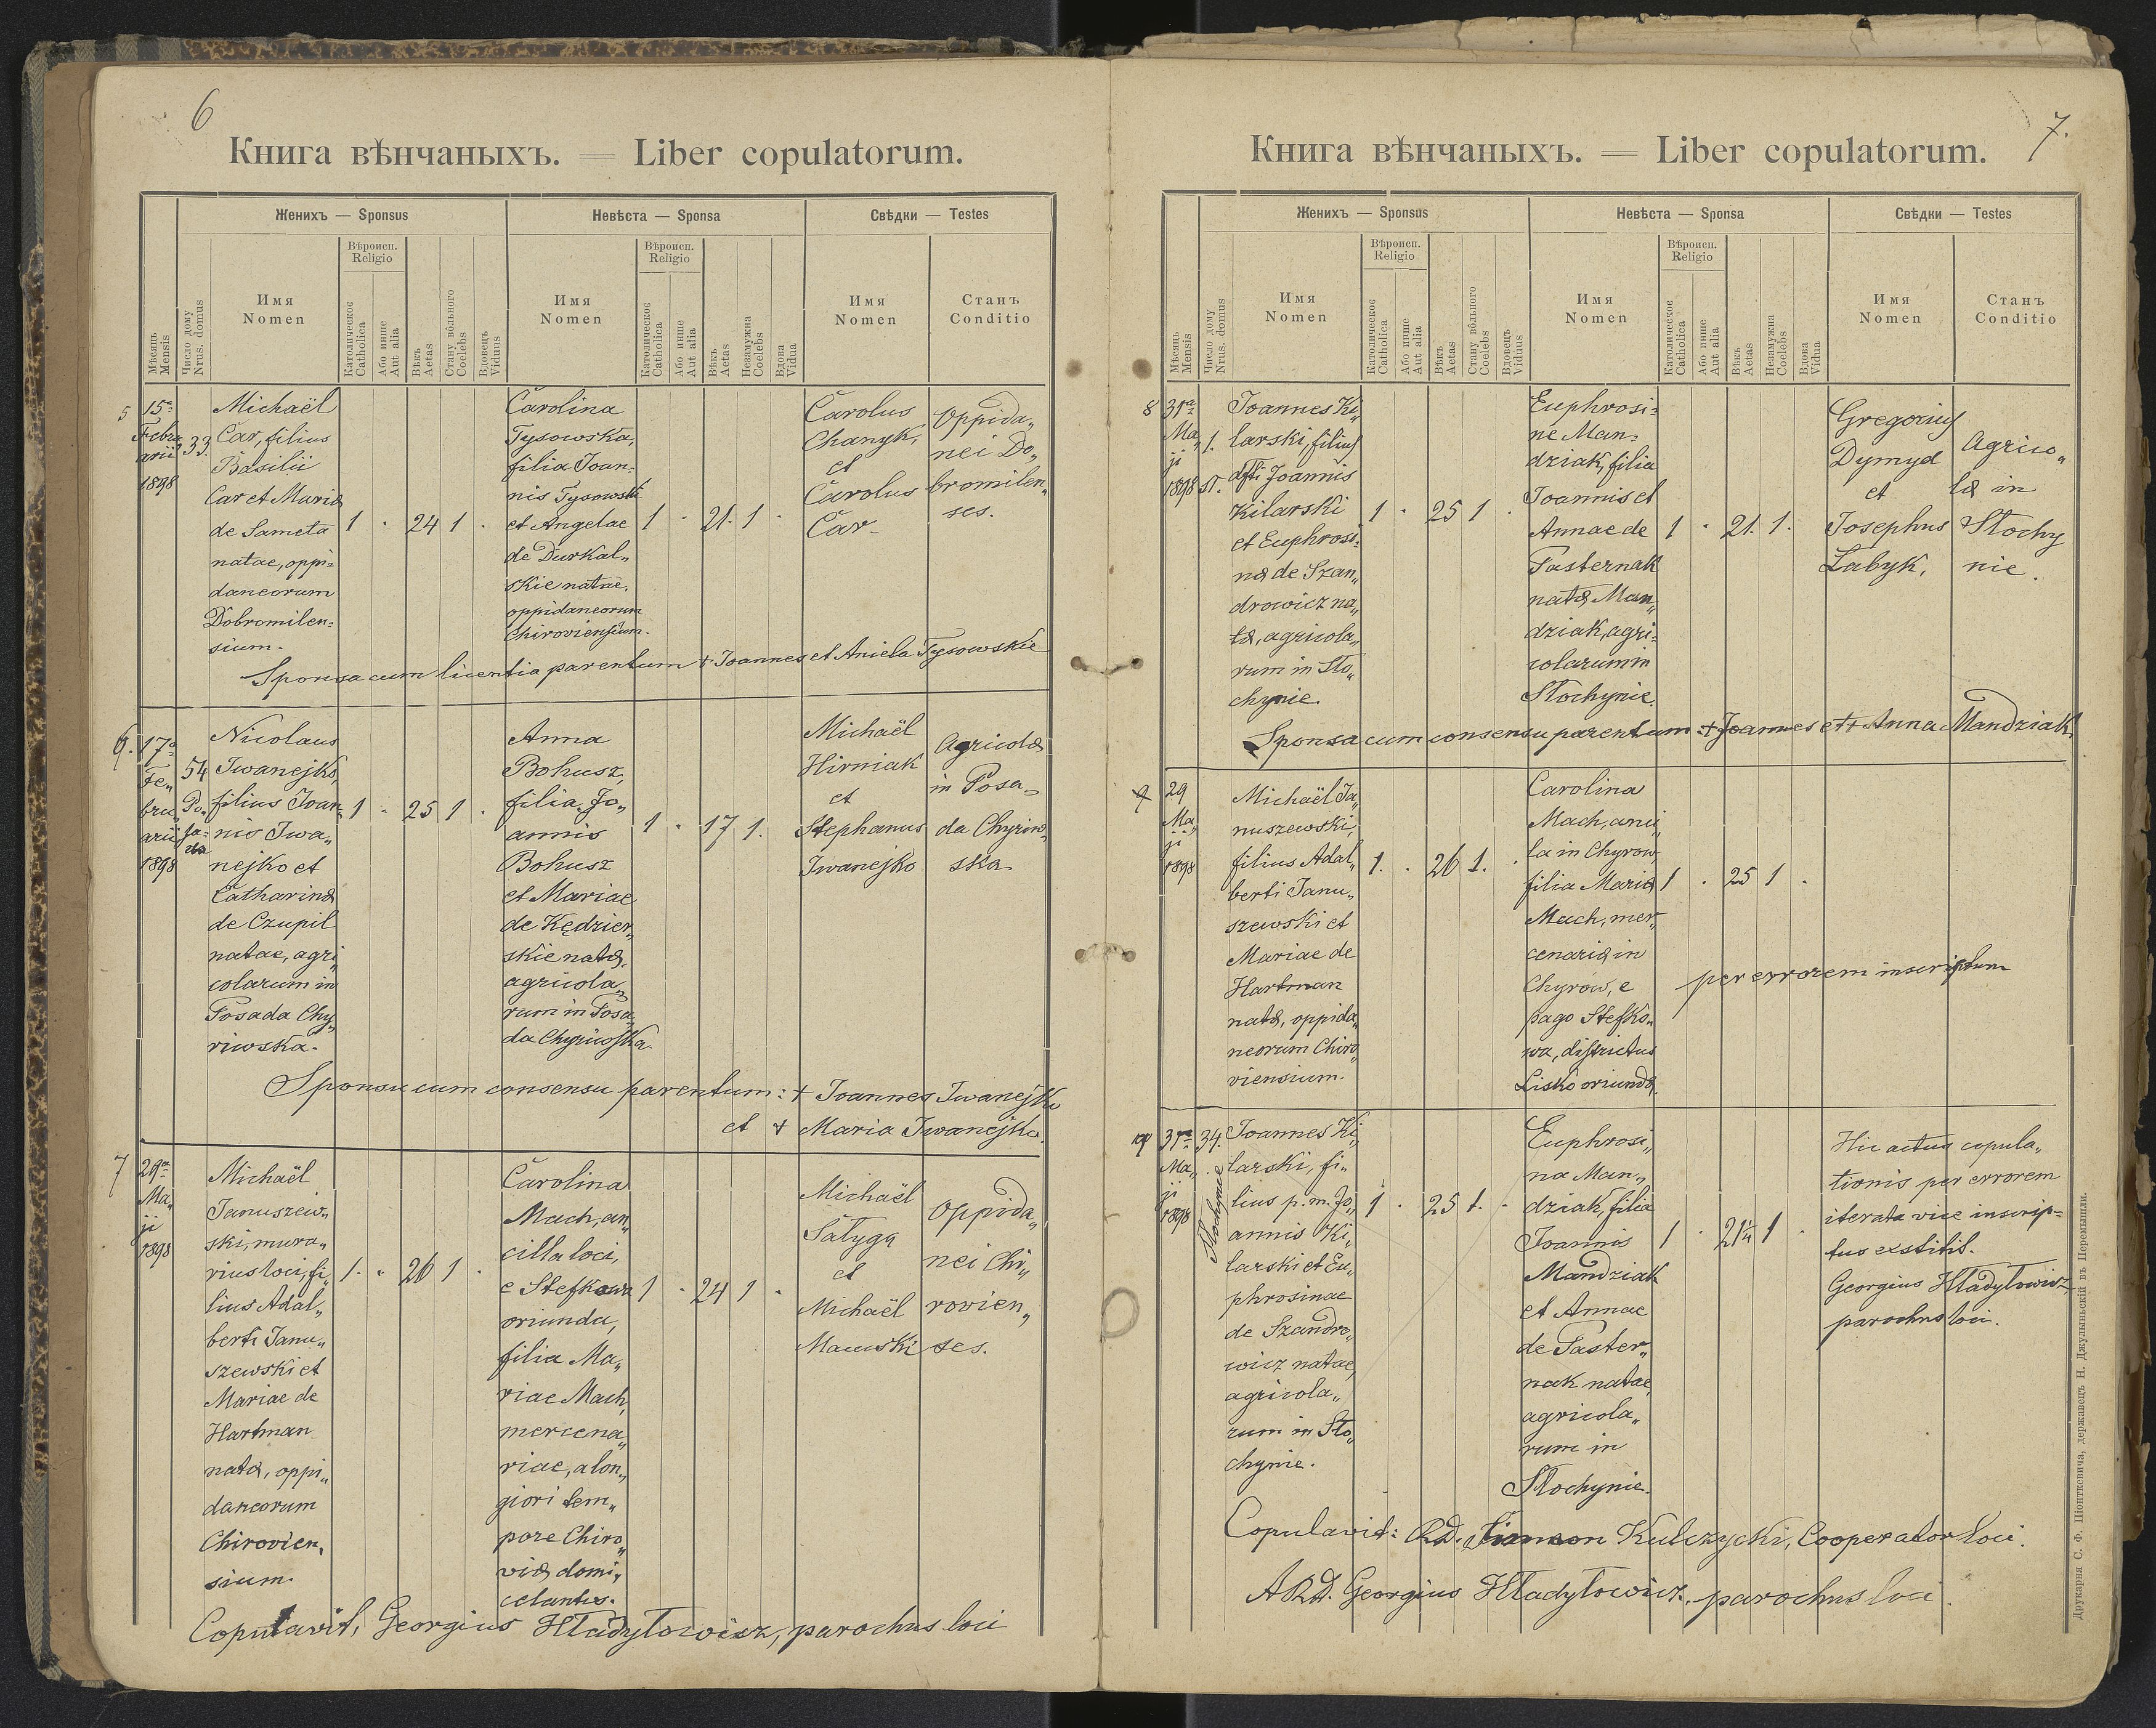 6
Книга вѣнчаныхъ. — Liber copulatorum.
Женихъ — Sponsus
Невѣста — Sponsa
Свѣдки — Testes
Мѣсяць
Mensis
Число дому
Nrus. domus
Имя
Nomen
Вѣроисп.
Religio
Католическое
Catholica
Або инше
Aut alia
Вѣкъ
Aetas
Стану вôльного
Coelebs
Вдовець
Viduus
Имя
Nomen
Вѣроисп.
Religio
Католическое
Catholica
Або инше
Aut alia
Вѣкъ
Aetas
Незамужна
Coelebs
Вдова
Vidua
Имя
Nomen
Станъ
Conditio
5
15ª
Febru
arii
1898
33.
Michaël
Čar, filius
Basilii
Čar et Mariæ
de Sameta
natae, oppi=
daneorum
Dobromilen=
sium.
1 . 24 1 .
Čarolina
Tysowska,
filia Joan=
nis Tysowski
et Angelae
de Durkal„
skie natae,
oppidaneorum
Chiroviensium.
1 . 21. 1 .
Čarolus
Chanyk,
et
Čarolus
Čar
Oppida„
nei Do„
bromilen„
ses.
Sponsa cum licentia parentum + Joannes et Aniela Tysowskie
6.
17ª
Fe„
bru„
arii
1898
54
Po„
sa=
da
Nicolaus
Iwanejko,
filius Joan„
nis Iwa„
nejko et
Catharinæ
de Czupil
natae, agri„
colarum in
Posada Chy„
riwska.
1 . 25 1 .
Anna
Bohusz,
filia Jo„
annis
Bohusz
et Mariae
de Kędzier„
skie natæ,
agricola„
rum in Posa„
da Chyriwska.
1 . 17 1.
Michaël
Hirniak
et
Stephanus
Iwanejko
Agricolæ
in Posa„
da Chyriw„
ska.
Sponsa cum consensu parentum: + Joannes Iwanejko
et + Maria Iwanejko.
7
29ª
Ma„
ji
1898
Michaël
Januszew„
ski, mura„
rius loci, fi„
lius Adal„
berti Janu„
szewski et
Mariae de
Hartman
natæ, oppi„
daneorum
Chirovien„
sium.
1 . 26 1 .
Čarolina
Mach, an„
cilla loci,
e Stefkowa
oriunda,
filia Ma„
riae Mach,
mercena„
riae, a lon„
giori tem„
pore Chiro„
viæ domi„
celantis.
1 . 24 1 .
Michaël
Satyga
et
Michaël
Mauski
Oppida„
nei Chi„
rovien„
ses.
Copulavit, Georgius Hładyłowicz, parochus loci
7.
Книга вѣнчаныхъ. — Liber copulatorum.
Женихъ — Sponsus
Невѣста — Sponsa
Свѣдки — Testes
Мѣсяць
Mensis
Число дому
Nrus. domus
Имя
Nomen
Вѣроисп.
Religio
Католическое
Catholica
Або инше
Aut alia
Вѣкъ
Aetas
Стану вôльного
Coelebs
Вдовець
Viduus
Имя
Nomen
Вѣроисп.
Religio
Католическое
Catholica
Або инше
Aut alia
Вѣкъ
Aetas
Незамужна
Coelebs
Вдова
Vidua
Имя
Nomen
Станъ
Conditio
8
31ª
Ma„
ji
1898
Joannes Ki„
larski, filius
dfti Joannis
Kilarski
et Euphrosi=
næ de Szan„
drowicz na„
tæ, agricola„
rum in Sło„
chynie.
1 . 25 1 .
Euphrosi=
ne Man=
dziak, filia
Joannis et
Annae de
Pasternak
natæ Man„
dziak, agri=
colarum in
Słochynie.
1 . 21. 1.
Gregorius
Dymyd
et
Josephus
Łabyk,
Agrico„
læ in
Słochy
nie.
Sponsa cum consensu parentum: + Joannes et + Anna Mandziak.
9
29
Ma„
ji
1898
Michaël Ja„
nuszewski,
filius Adal„
berti Janu„
szewski et
Mariae de
Hartman
natæ, oppida„
neorum Chiro„
viensium.
1. . 26 1. .
Carolina
Mach, anci„
la in Chyrow,
filia Mariæ
Mach, mer„
cenariæ in
Chyrow, e
pago Stefko„
wa, districtus
Lisko oriundæ.
1 . 25 1 .
per errorem inscriptum
31ª
Ma„
ji
1898
34.
Słochynie
Joannes Ki„
larski, fi„
lius p. m. Jo„
annis Ki„
larski et Eu„
phrosinae
de Szandro„
wicz natae,
agricola„
rum in Sło„
chynie.
1 . 25 1. .
Euphrosi„
na Man„
dziak, filia
Joannis
Mandziak
et Annae
de Paster„
nak natae,
agricola„
rum in
Słochynie.
1 . 21¼ 1 .
Hic actus copula„
tionis per errorem
iterata vice inscrip=
tus exstitit.
Georgius Hładyłowicz,
parochus loci.
Copulavit: RD. Simeon Kulczycki, Cooperator loci.
ARD. Georgius Hładyłowicz, parochus loci.
Друкарня С. Ф. Піонткевича, державець Н. Джулыньскій въ Перемышли.